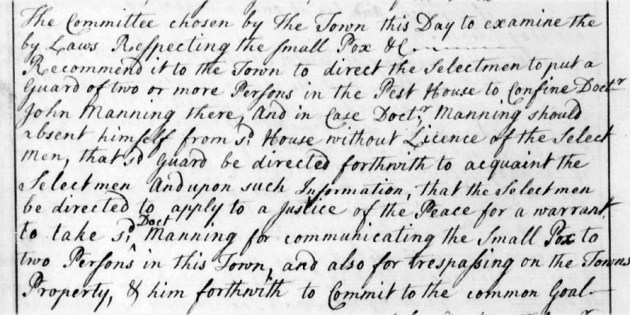 The Committee chosen by The Town this Day to examine the
by Laws Respecting the Small Pox &C
Recommend it to the Town to direct the Selectmen to put a
Guard of two or more Persons in the Pest House to Confine Doctr.
John Manning there, And in Case Doctr. Manning should
absent himself from sd. House without Licence of the Select
men, that sd Guard be directed forthwith to acquaint the
Selectmen And upon such Information, that the Selectmen
be directed to apply to a Justice of the Peace for a warrant
to take sd. Doctr Manning for communicating the Small Pox to
two Persons in this Town, and also for trespassing on the Towns
Property, & him forthwith to Commit to the common Goal